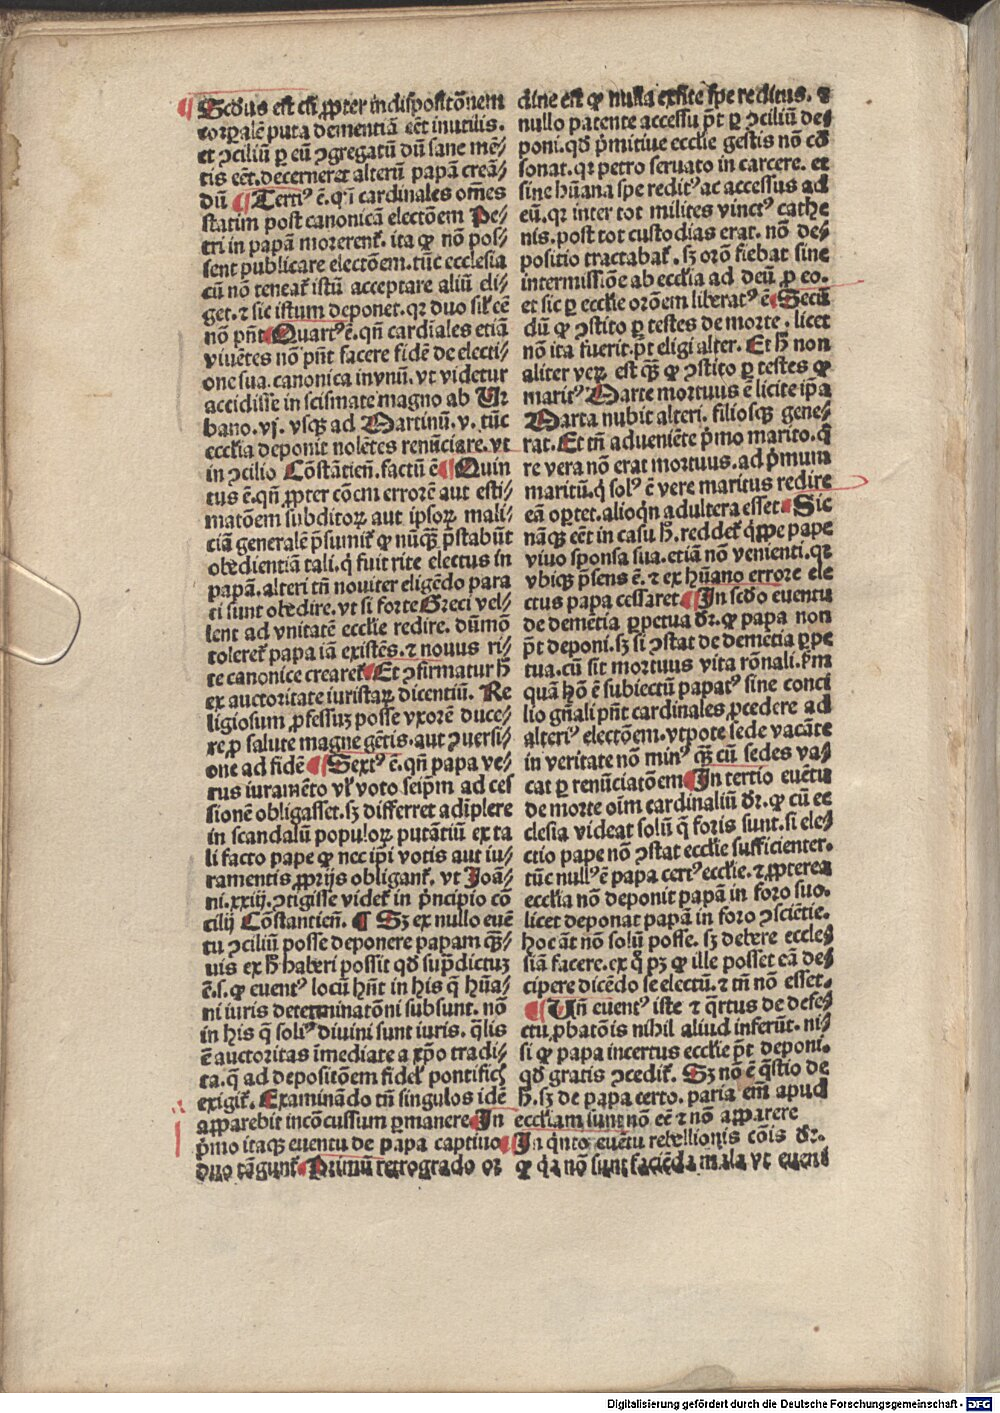 ¶ Scd̓us est cū ꝓpter indispositōnem
corꝑalē puta dementiā eēt inutilis.
et ꝯciliū ꝑ eū ꝯgregatū dū sane mē-
tis eēt. decerneret alterū papā creā-
dū ¶ Terti⁹ ē. qn̄ cardinales om̄es
statim post canonicā electōem Pe-
tri in papā morerent̄. ita ꝙ nō pos-
sent publicare electōem. tūc ecclesia
cū nō teneat̄ istū acceptare aliū eli-
get. ⁊ sic istum deponet. qꝛ duo sil̓ eē
nō pn̄t ¶ Quart⁹ ē. qn̄ cardīales etiā
viuētes nō pn̄t facere fidē de electi-
one sua. canonica in vnū. vt videtur
accidisse in scismate magno ab Ur
bano. vj. vsqꝫ ad Martinū. v. tūc
eccl̓ia deponit nolētes renūciare. vt
in ꝯcilio Cōstātien̄. factū ē ¶ Quin
tus ē. qn̄ ꝓpter cōem errorē aut esti-
matōem subditoꝝ aut ipsoꝝ mali-
ciā generalē p̄sumit̄ ꝙ nūqꝫ̄ p̄stabūt
obedientiā tali. q̇ fuit rite electus in
papā. alteri tn̄ nouiter eligēdo para
ti sunt obedire. vt si forte Greci vel-
lent ad vnitatē eccl̓ie redire. dūmō
toleret̄ papa iā existēs. ⁊ nouus ri-
te canonice crearet̄ ¶ Et ꝯfirmatur h̄
ex auctoritate iuristaꝝ dicentiū. Re
ligiosum ꝓfessuꝫ posse vxorē duce-
re ꝓ salute magne gētis. aut ꝯuersi-
one ad fidē ¶ Sext⁹ ē. qn̄ papa ve-
rus iuramēto vl̓ voto seip̄m ad ces
sionē obligasset. sꝫ differret adīplere
in scandalū populoꝝ putātiū ex ta
li facto pape ꝙ nec ip̄i votis aut iu-
ramentis ꝓprijs obligant̄. vt Joā-
ni. xxiij. ꝯtigisse videt̄ in p̄ncipio cō
cilij Cōstantien̄. ¶ Sꝫ ex nullo euē
tu ꝯciliū posse deponere papam qꝫ̄-
uis ex h̄ haberi possit qd̓ sup̄dictuꝫ
ē. s. ꝙ euent⁹ locū hn̄t in his q̄ hūa-
ni iuris determinatōni subsunt. nō
in his q̄ soli⁹ diuini sunt iuris. q̄lis
ē auctoritas īmediate a xp̄o tradi-
ta. q̄ ad depositōem fidel̓ pontificꝭ
exigit̄. Examinādo tn̄ singulos idē
apparebit incōcussum ꝑmanere ¶ In
p̄mo itaqꝫ euentu de papa captiuo
duo tāgunt̄ ¶ Primū retrogrado or
dine est ꝙ nulla exn̄te spe reditus. ⁊
nullo patente accessu p̄t ꝑ ꝯciliū de-
poni. qd̓ p̄mitiue eccl̓ie gestis nō cō
sonat. qꝛ petro seruato in carcere. et
sine hūana spe redit⁹ ac accessus ad
eū. qꝛ inter tot milites vinct⁹ cathe
nis. post tot custodias erat. nō de-
positio tractabat̄. sꝫ orō fiebat sine
intermissiōe ab eccl̓ia ad deū ꝓ eo.
et sic ꝑ eccl̓ie orōem liberat⁹ ē ¶ Secū
dū ꝙ ꝯstito ꝑ testes de morte. licet
nō ita fuerit. p̄t eligi alter. Et h̄ non
aliter veꝝ est qꝫ̄ ꝙ ꝯstito ꝑ testes ꝙ
marit⁹ Marte mortuus ē licite ip̄a
Marta nubit alteri. filiosqꝫ gene-
rat. Et tn̄ adueniēte p̄mo marito. q̇
re vera nō erat mortuus. ad p̄mum
maritū. q̇ sol⁹ ē vere maritus redire
eā oꝑtet. alioqn̄ adultera esset ¶ Sic
nāqꝫ eēt in casu h̄. reddet̄ q̇ppe pape
viuo sponsa sua. etiā nō venienti. qꝛ
vbiqꝫ p̄sens ē. ⁊ ex hūano errore ele
ctus papa cessaret ¶ In scd̓o euentu
de demētia ꝑpetua dr̄. ꝙ papa non
p̄t deponi. sꝫ si ꝯstat de demētia ꝑpe
tua. cū sit mortuus vita rōnali. ẜm
quā hō ē subiectū papat⁹ sine conci
lio gn̄ali pn̄t cardinales ꝓcedere ad
alteri⁹ electōem. vtpote sede vacāte
in veritate nō min⁹ qꝫ̄ cū sedes va-
cat ꝑ renūciatōem ¶ In tertio euētu
de morte oīm cardinaliū dr̄. ꝙ cū ec
clesia videat solū q̄ foris sunt. si ele-
ctio pape nō ꝯstat eccl̓ie sufficienter.
tūc null⁹ ē papa cert⁹ eccl̓ie. ⁊ ꝓpterea
eccl̓ia nō deponit papā in foro suo.
licet deponat papā in foro ꝯsciētie.
hoc āt nō solū posse. sꝫ debere eccle-
siā facere. ex q̇ pꝫ ꝙ ille posset eā de-
cipere dicēdo se electū. ⁊ tn̄ nō esset.
¶ Un̄ euent⁹ iste ⁊ q̄rtus de defe-
ctu ꝓbatōis nihil aliud inferūt. ni-
si ꝙ papa incertus eccl̓ie p̄t deponi.
qd̓ gratis ꝯcedit̄. Sꝫ nō ē q̄stio de
h̄. sꝫ de papa certo. paria em̄ apud
eccl̓iam sunt nō eē ⁊ nō apparere
¶ In q̇nto euētu rebellionis cōis dr̄.
ꝙ q̇a nō sunt faciēda mala vt eueni